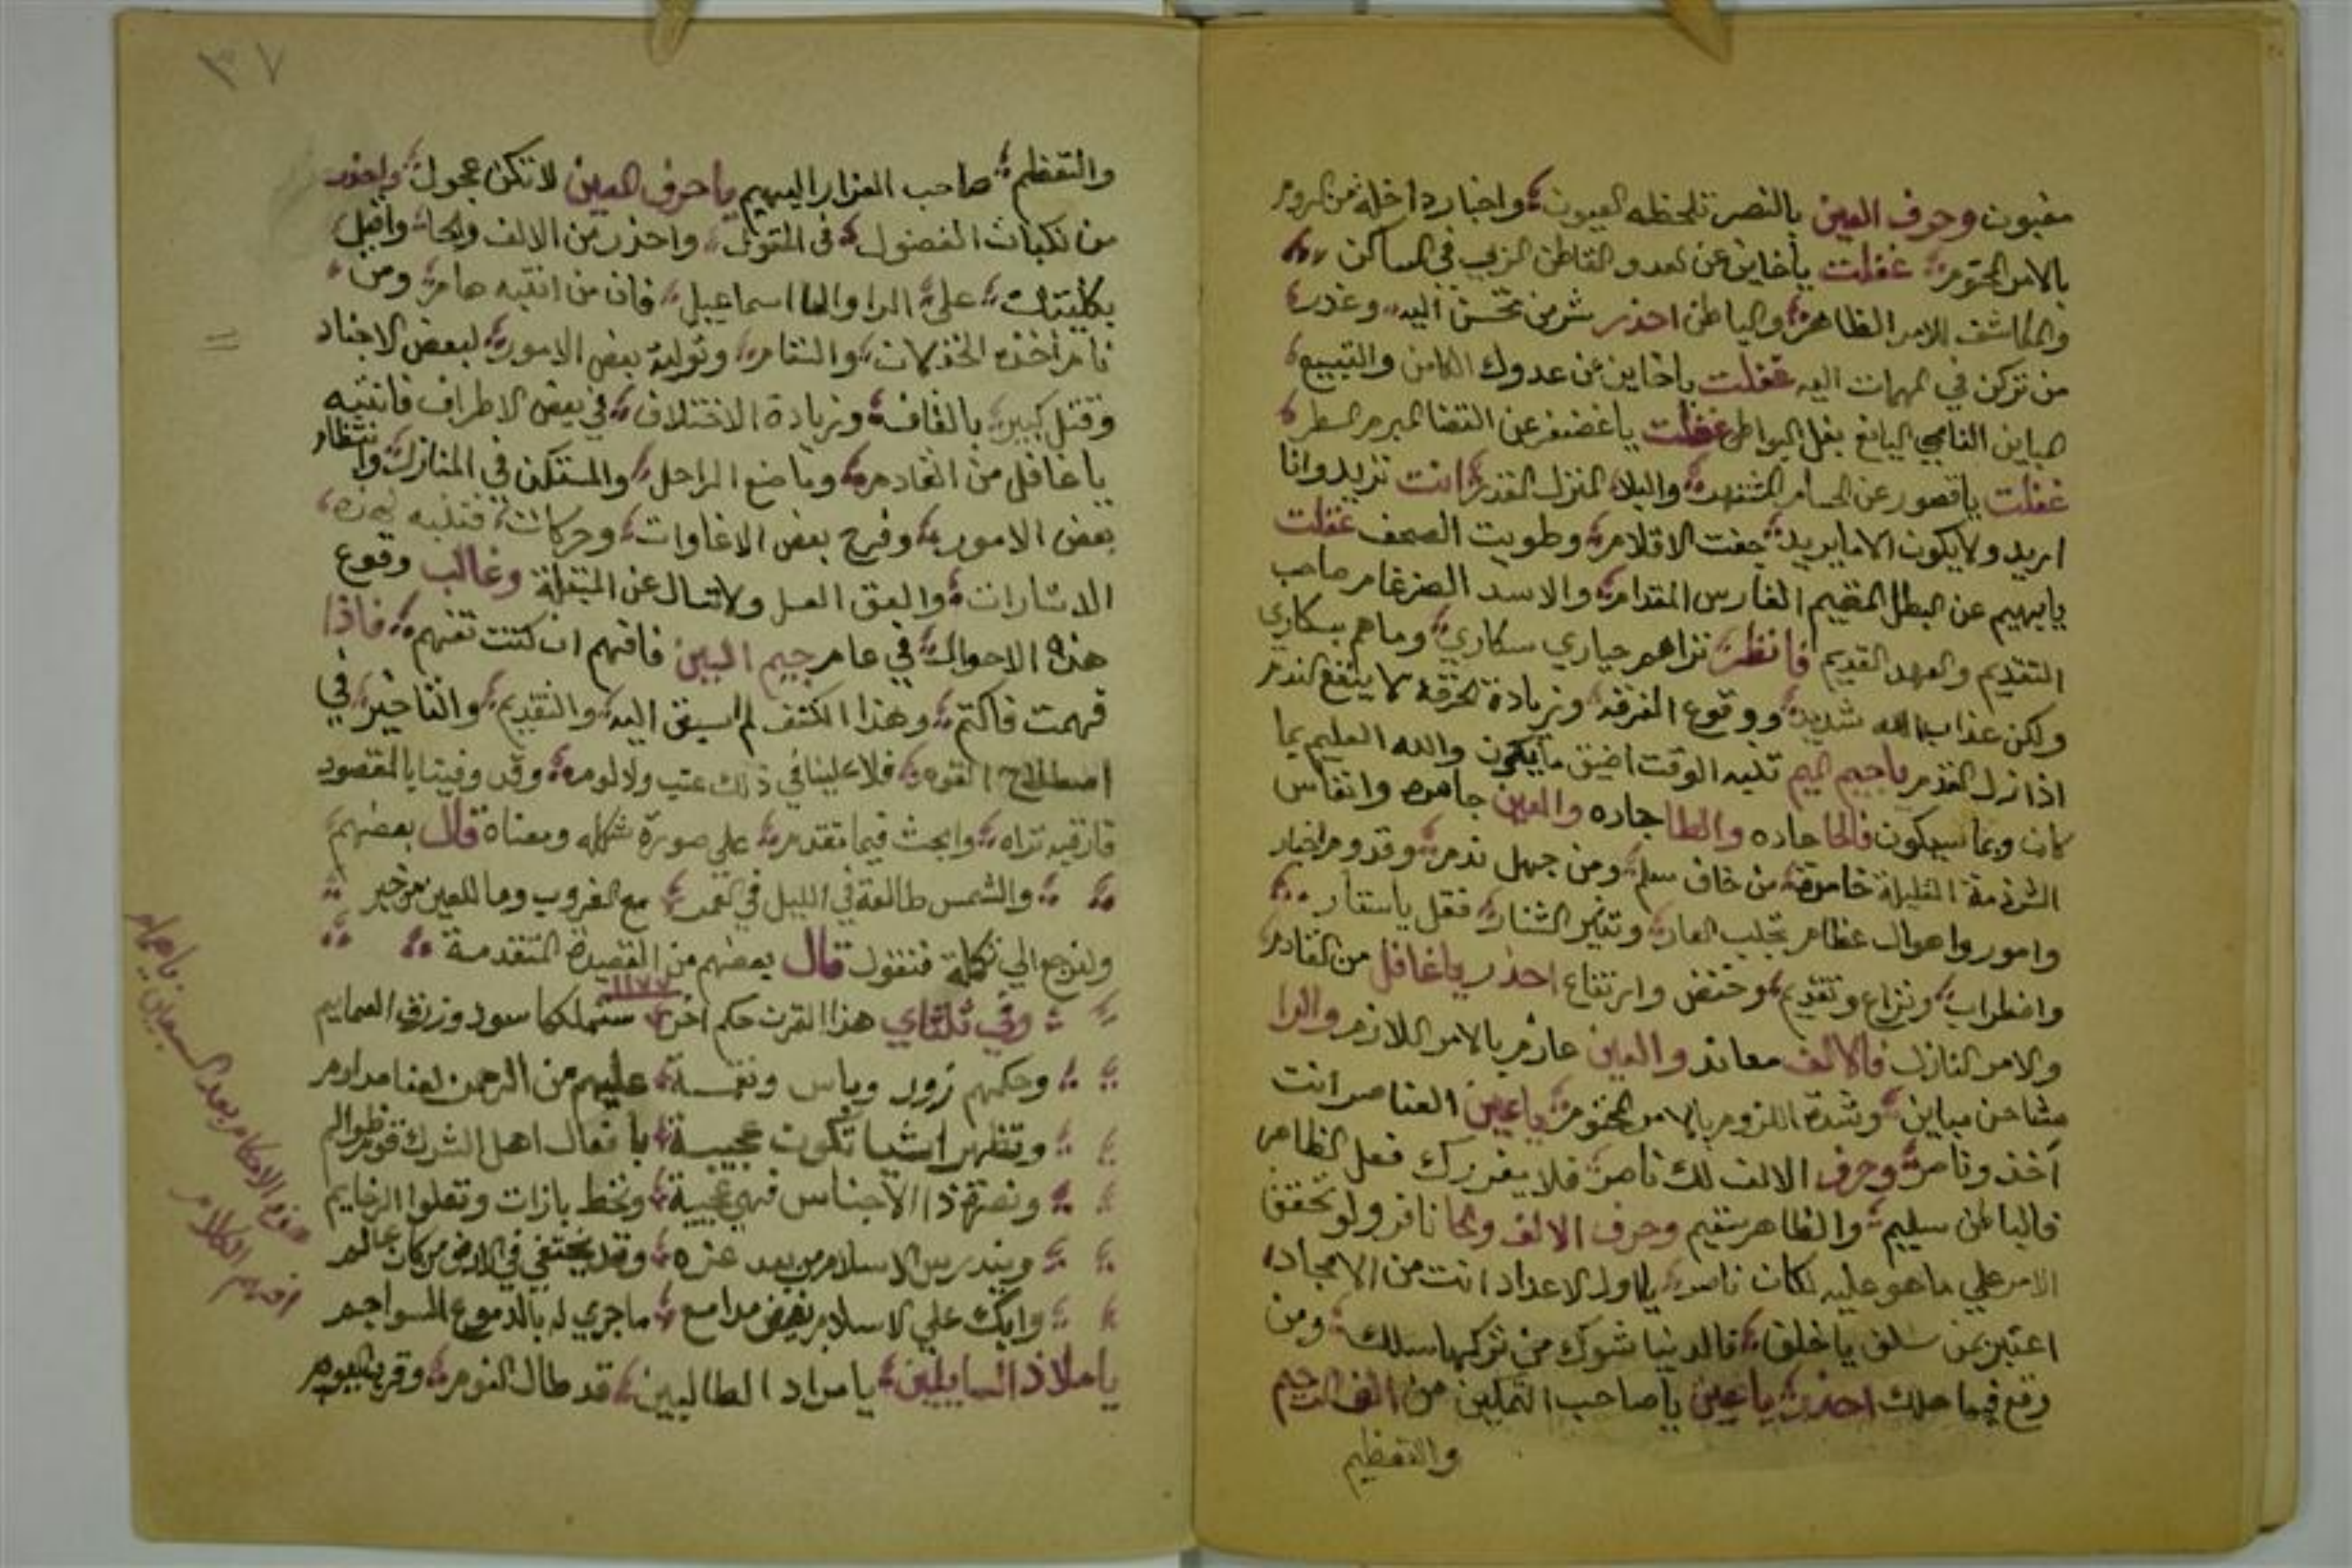 مغبون وحرف العين بالنصر تلحظه العيون واخبار داخلة من الروم
بالامر المحتوم غفلت ياخاين عن لعدو القاطن الزيي في المساكن
والمكاشف للامر الظاهر والباطن احذر شر من تحسن اليه وغدر
من تركن في المهمات اليه غفلت ياخاين عن عدوك الكامن والتبيع
المباين الناجي غفلت ياغضنفر عن القضا المبرم المسطر
غفلت ياقصور عن الحسام المشتهر والبلا المنزل المقدر انت تريد وانا
اريد ولا يكون الا ما يريد جفت الاقلام وطويت الصحف غفلت
يابهيم عن البطل المقيم الفارس المقدام والاسد الضرغام صاحب
التقديم والعهد القديم فانظر تراهم حياري سكاري وما هم بسكاري
ولكن عذاب الله شديد ووقوع الفرقه وزيادة الحرقه لا ينفع الندم
اذا نزل القدم ياجيم الميم تنبه الوقت اضيق ما يكون والله العليم بما
كان وبما سيكون فالحا حاده والطا جاده والعين جامده وانفاس
الشرذمة القليلة خامدة من خاف سلم ومن جهل ندم وقدوم اخبار
وامور واهوال عظام تجلب العار وتثير الشنار فقل ياستار
واضطراب ونزاع وتقديم وخفض وارتفاع احذر ياغافل من القادم
والامر النازل فالالف معاند والعين عازم بالامر اللازم والرا
مشاحن مباين وشدة اللزوم بالامر المحتوم ياعين العناصر انت
آخذ وناصر وحرف الالف لك ناصر فلا يغررك فعل الظاهر
فالباطن سليم والظاهر سقيم وحرف الالف والحا نافر ولو تحقق
الامر علي ما هو عليه لكان ناصر ياول الاعداد انت من الامجاد
اعتبر بمن سلف ياخلف فالدنيا شوك من تركها سلك ومن
وقع فيها هلك احذر ياعين ياصاحب التمكين من الف الرحيم
والتعظيم
٣٧
والتعظم صاحب العزار البهيم ياحرف العين لا تكن عجول واحذر
من نكبات الفضول في القول واحذر من الالف والحا واقبل
بكليتك علي الرا والها اسماعيل فان من انتبه صام ومن
نام اخذه الخذلان والنقام وتولية بعض الامور لبعض الاجناد
وقتل كبير بالقاف وزيادة الاختلاف في بعض الاطراف فانتبه
ياغافل من القادم وياضع الراحل والمستكن في المنازل وانتظار
بعض الامور وفرح بعض الاغاوات وحركات فتنبه لهذه
الاشارات والعق العسل ولا تسال عن المبقلة وغالب وقوع
هذه الاحوال في عام جيم البين فافهم ان كنت تفهم فاذا
فهمت فاكتم وهذا الكشف لم اسبق اليه والتقديم والتاخير في
اصطلاح القوم فلا علينا في ذلك عتب ولا لومه وقد وفينا بالمقصود
فارقبه تراه وابحث فيما تقدم علي صورة شكله ومعناه قال بعضهم
والشمس طالعة في الليل في القمر مع الغروب وما للعين من خبر
ولنرجع الي تكملة فنقول قال بعضهم من القصيدة المتقدمة
١١٧٧
وفي ثلثاي هذا القرن حكم اخر ستملكها سود وزرق العمايم
وحكمهم زور وباس ونقمة عليهم من الرحمن لعنا مداوم
وتظهر اشيا تكون عجيبة بافعال اهل الشرك قوم ظوالم
ونصرة ذا الاجناس فهي عجيبة وتحط بازات وتعلوا الرخايم
ويندرس الاسلام من بعد عزه وقد يختفي في الارض من كان عالم
وابك علي الاسلام بفيض مدامع ما جري له بالدموع السواجم
ياملاذ السايلين يا مراد الطالبين قد طال النوم وقرب اليوم
افهم الكلام